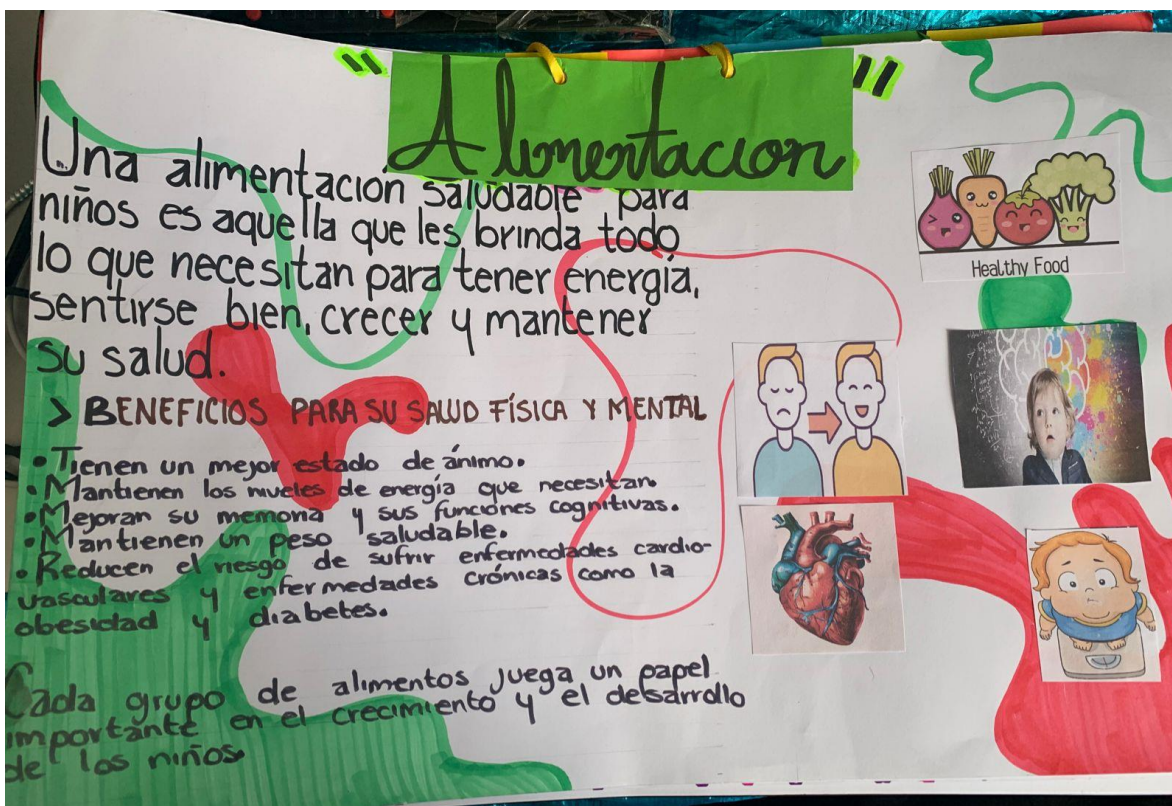 "Alimentacion"
Una alimentación saludable para
niños es aquella que les brinda todo
lo que necesitan para tener energía,
sentirse bien, crecer y mantener
su salud.
> BENEFICIOS PARA SU SALUD FÍSICA Y MENTAL
• Tienen un mejor estado de ánimo.
• Mantienen los niveles de energía que necesitan.
• Mejoran su memoria y sus funciones cognitivas.
• Mantienen un peso saludable.
• Reducen el riesgo de sufrir enfermedades cardio-
vasculares y enfermedades crónicas como la
obesidad y diabetes.
Cada grupo de alimentos juega un papel
importante en el crecimiento y el desarrollo
de los niños.
Healthy Food